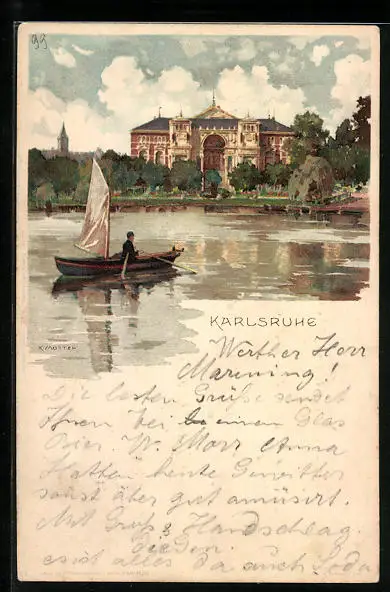 99
K. MUTTER
KARLSRUHE
Werther Herr
Marening!
Die besten Grüße sendet
Ihnen bei einem Glas
Bier. W. Morr Anna
Hatten heute Gewitter
sonst aber gut amüsirt.
Mit Gruß & Handschlag
es ist alles da auch Soda